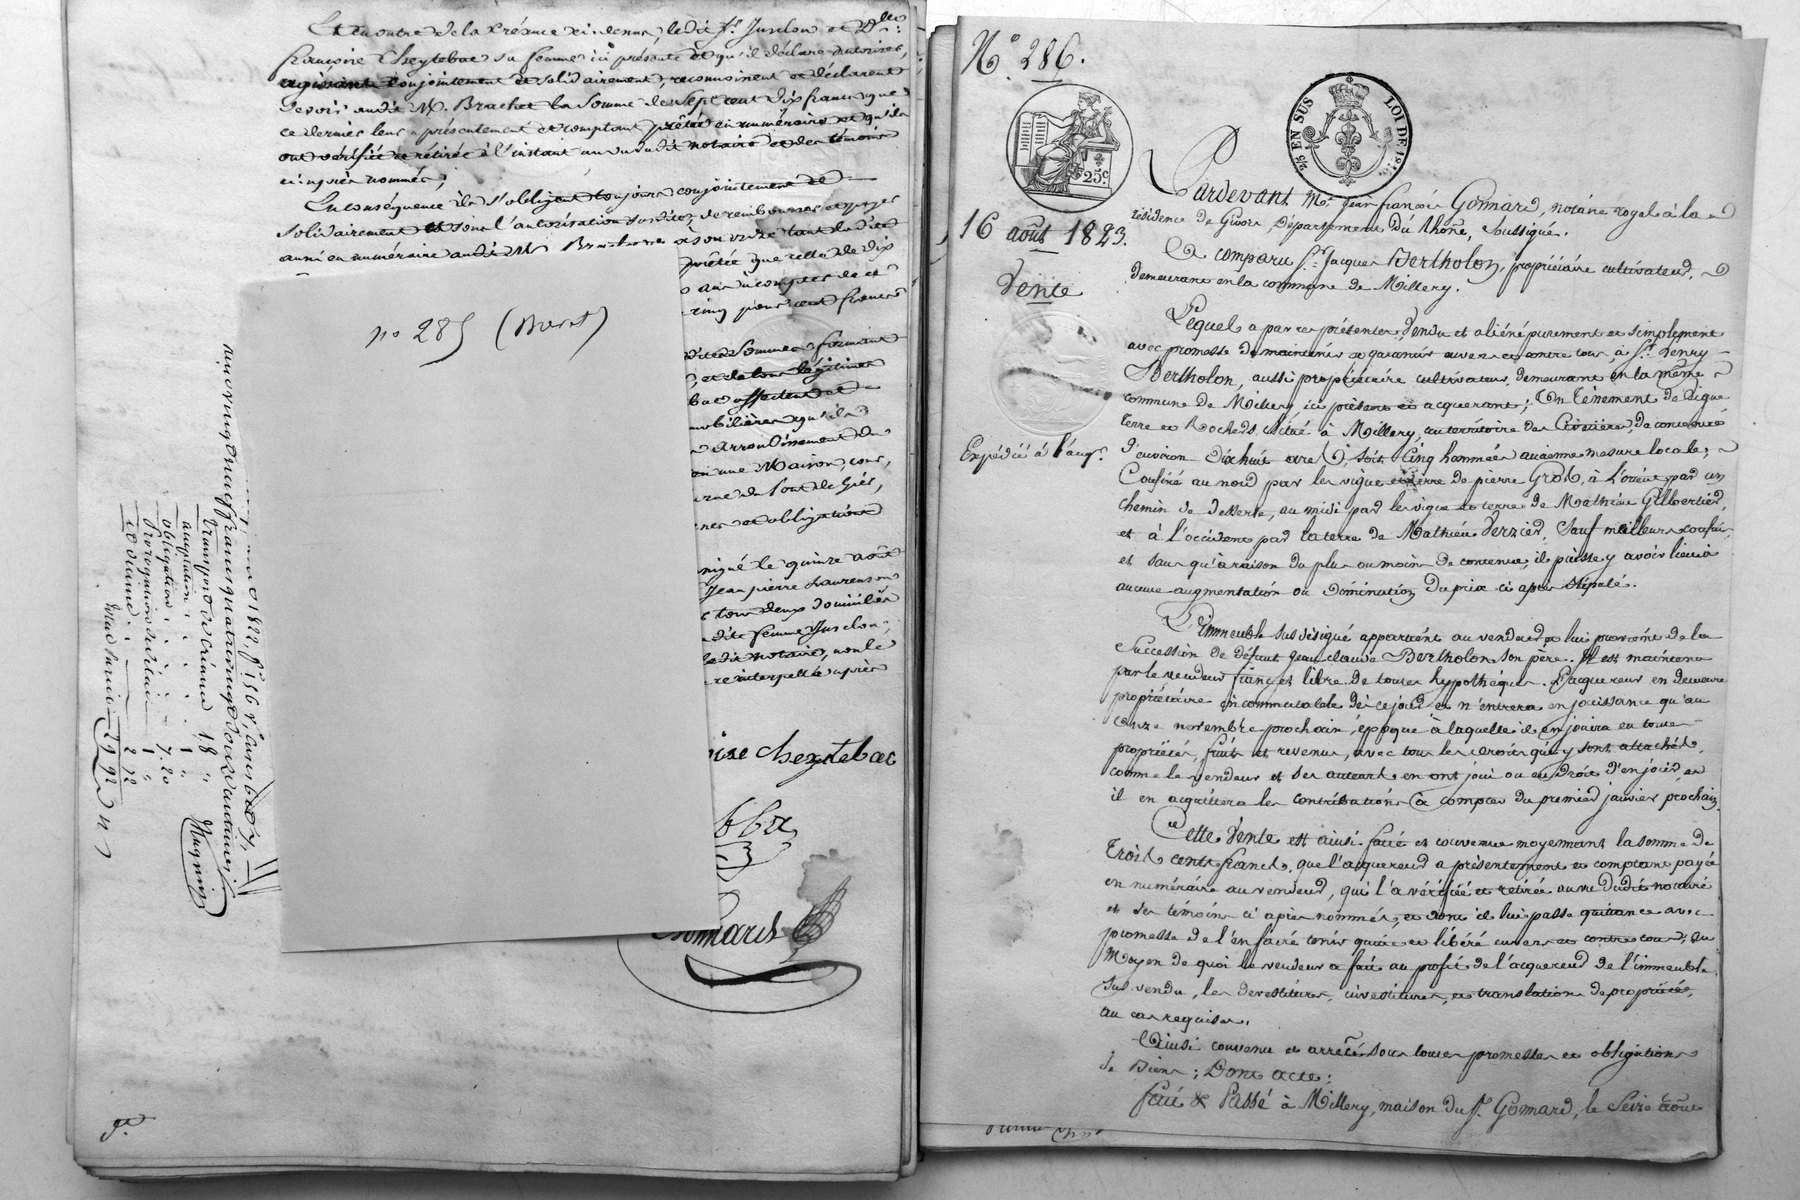 Et en outre de la présence ci dessus, ledit Sr. Jurelon et Dlle.
françoise Cheytebac sa femme ici présente et qu'il déclare autoriser,
agissant conjointement et solidairement, reconnoissent et déclarent
devoir audit M. Brachet la somme de Sept cent dix francs que
ce dernier leur a présentement et comptant prêtée en numéraire et qu'ils
ont vérifiée et retirée à l'instant au vu dudit notaire et des témoins
ci après nommés;
En conséquence ils s'obligent toujours conjointement et
solidairement et sous l'autorisation susdite, de rembourser et payer
aussi en numéraire audit M. à son ordre tant ladite
prêtée que celle de dix
ans à compter de ce
cinq pour cent francs
dites Sommes formant
et de leur légitimes
affectent et
mobilières qu'ils
Arrondissement de
une Maison, cour,
de Pont de Gier,
et obligations
le quinze août
Jean pierre Laurenson
tous deux domiciliés
dite femme Jurelon,
ledit notaire, non le
interpellé après
oise cheytebac
Gonnard
no 285 (Buret)
1822, fo. 156
transport de créance 18
acceptation 1
obligation 7.20
prorogation de délai 1
2 72
29 92
No. 286.
25 EN SUS LOI DE
25c
16 août 1823.
Vente
Expédié à l'acqr.
Pardevant Me. Jean françois Gonnard, notaire royal à la
résidence de Givors, Département du Rhône, soussigné.
A comparu Sr. Jacques Bertholon, propriétaire cultivateur,
demeurant en la commune de Millery.
Lequel a par ces présentes, vendu et aliéné purement et simplement
avec promesse de maintenir et garantir envers et contre tous, à Sr. henry
Bertholon, aussi propriétaire cultivateur, demeurant en la même
commune de Millery, ici présent et acquérant; Un Tènement de vigne
terre et Rochers situé à Millery, au territoire des , de contenue
d'environ dix huit ares, soit Cinq hommées ancienne mesure locale;
Confiné au nord par les vigne et terre de pierre Gros, à l'orient par un
chemin de desserte, au midi par les vigne et terre de Mathieu Gilbertier,
et à l'occident par la terre de Mathieu Verzier, Sauf meilleurs confins,
et sans qu'à raison du plus ou moins de contenue, il puisse y avoir lieu à
aucune augmentation ou diminution du prix ci après stipulé.
L'immeuble sus désigné appartient au vendeur et lui provient de la
Succession de défunt Jean claude Bertholon son père. Il est maintenu
par le vendeur franc et libre de toutes hypothèques. L'acquéreur en demeure
propriétaire incommutable dès ce jour et n'entrera en jouissance qu'au
onze novembre prochain, époque à laquelle il en jouira en toute
propriété, fruits et revenus, avec tous les droits qui y sont attachés,
comme le vendeur et ses auteurs en ont joui ou eu droit d'en jouir, et
il en acquittera les contributions à compter du premier janvier prochain.
Cette Vente est ainsi faite et convenue moyennant la somme de
Trois cents francs, que l'acquéreur a présentement et comptant payée
en numéraire au vendeur, qui l'a vérifiée et retirée au vu dudit notaire
et des témoins ci après nommés, et dont il lui passe quittance avec
promesse de l'en faire tenir quitte et libéré envers et contre tous; Au
Moyen de quoi le vendeur a fait au profit de l'acquéreur de l'immeuble
sus vendu, les devestitures, investitures, et translations de propriété,
au cas requises.
Ainsi convenu et arrêté sous toutes promesses et obligations
de Biens; Dont acte;
Fait & Passé à Millery, maison du Sr. Gonnard, le Seize août